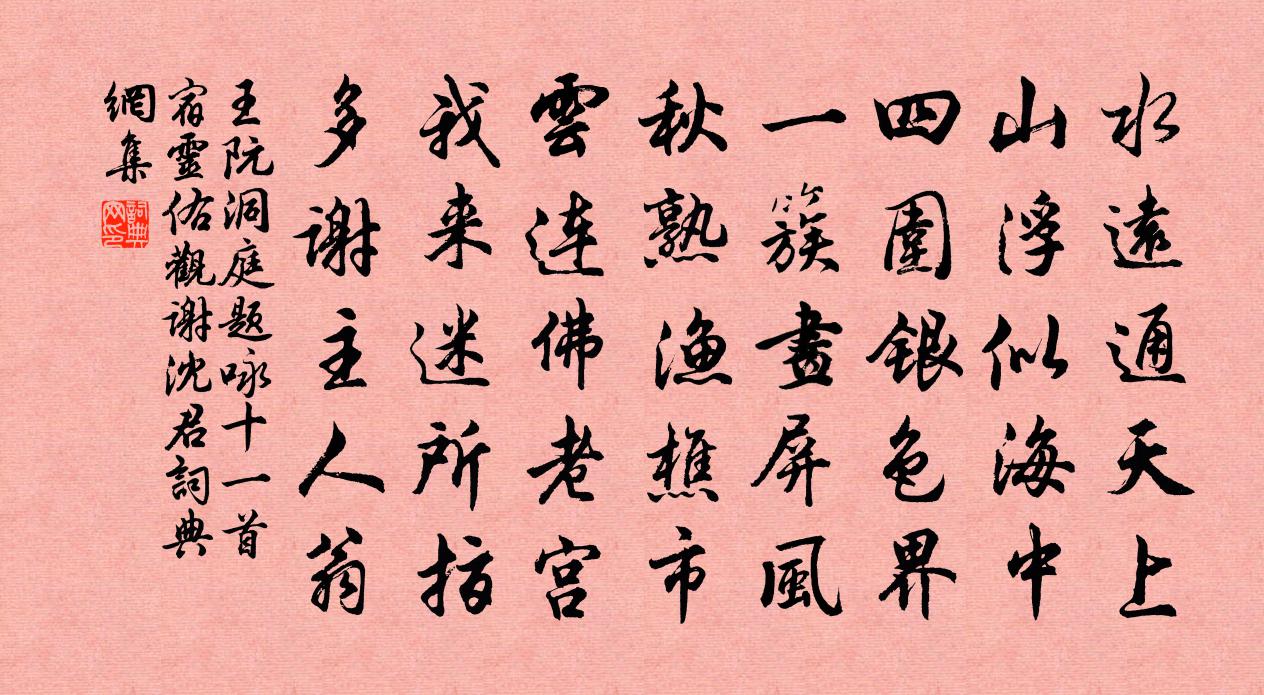 水遠通天上
山浮似海中
四圍銀色界
一簇畫屏風
秋熟漁樵市
雲連佛老宮
我来迷所指
多謝主人翁
王阮洞庭題咏十一首
宿靈佑觀謝沈君詞典
網集